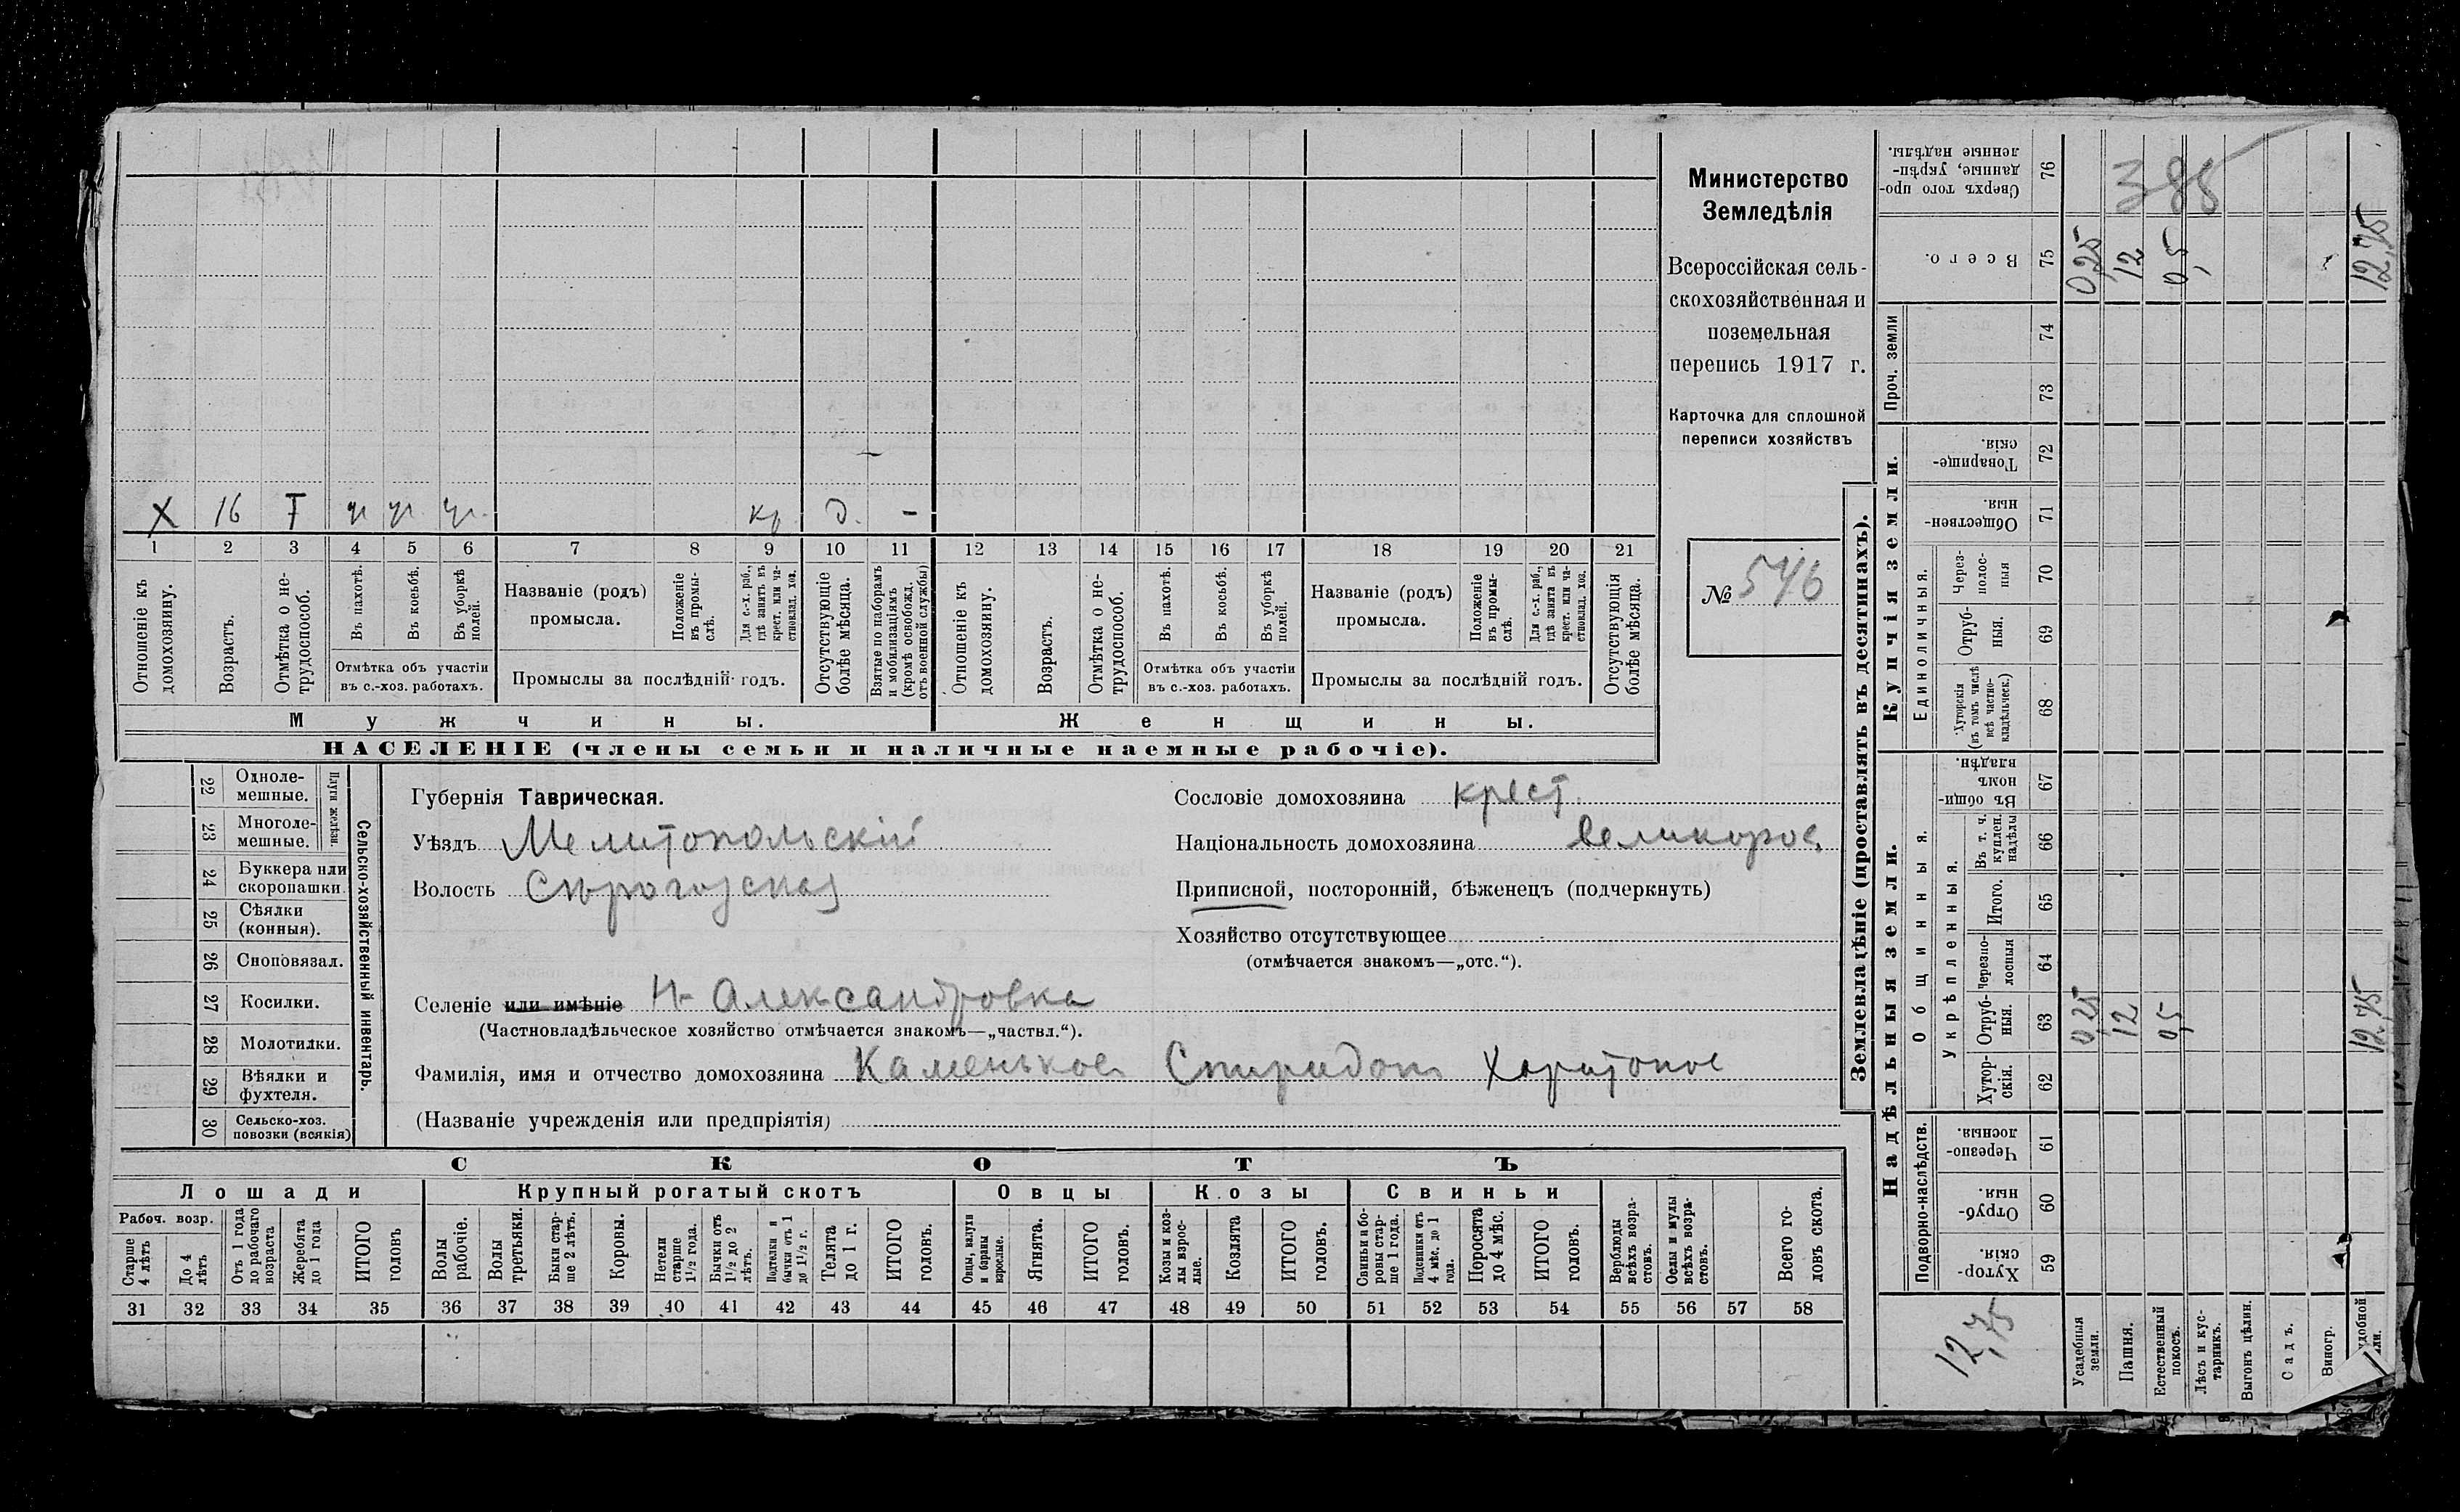 Министерство
Земледѣлія
Всероссійская сель-
скохозяйственная и
поземельная
перепись 1917 г.
Карточка для сплошной
переписи хозяйствъ
№ 546
X 16 Т ч ч ч кр Д. -
1 2 3 4 5 6 7 8 9 10 11 12 13 14 15 16 17 18 19 20 21
Отношеніе къ домохозяину.
Возрастъ.
Отмѣтка о не-трудоспособ.
Въ пахотѣ.
Въ косьбѣ.
Въ уборкѣ полей.
Отмѣтка объ участіи
въ с.-хоз. работахъ.
Названіе (родъ)
промысла.
Положеніе въ промы-слѣ.
Для с.-х. раб., гдѣ занятъ въ крест. или ча-стновлад. хоз.
Промыслы за послѣдній годъ.
Отсутствующіе болѣе мѣсяца.
Взятые по наборамъ и мобилизаціямъ (кромѣ освобожд. отъ военной службы)
Отношеніе къ домохозяину.
Возрастъ.
Отмѣтка о не-трудоспособ.
Въ пахотѣ.
Въ косьбѣ.
Въ уборкѣ полей.
Отмѣтка объ участіи
въ с.-хоз. работахъ.
Названіе (родъ)
промысла.
Положеніе въ промы-слѣ.
Для с.-х. раб., гдѣ занята въ крест. или ча-стновлад. хоз.
Промыслы за послѣдній годъ.
Отсутствующія болѣе мѣсяца.
Мужчины. Женщины.
НАСЕЛЕНІЕ (члены семьи и наличные наемные рабочіе).
Сельско-хозяйственный инвентарь.
Плуги желѣзн.
22 Одноле-мешные.
23 Многоле-мешные.
24 Буккера или скоропашки.
25 Сѣялки (конныя).
26 Сноповязал.
27 Косилки.
28 Молотилки.
29 Вѣялки и фухтеля.
30 Сельско-хоз. повозки (всякія)
Губернія Таврическая.
Уѣздъ Мелитопольскій
Волость Сѣрогозская
Селеніе или имѣніе Н-Александровка
(Частновладѣльческое хозяйство отмѣчается знакомъ—„частвл.“).
Фамилія, имя и отчество домохозяина Каменьков Спиридон Харитонов
(Названіе учрежденія или предпріятія)
Сословіе домохозяина крест.
Національность домохозяина великорос.
Приписной, посторонній, бѣженецъ (подчеркнуть)
Хозяйство отсутствующее
(отмѣчается знакомъ—„отс.“).
СКОТЪ
Лошади Крупный рогатый скотъ Овцы Козы Свиньи
Рабоч. возр.
Старше 4 лѣтъ
До 4 лѣтъ
Отъ 1 года до рабочаго возраста
Жеребята до 1 года
ИТОГО головъ
Волы рабочіе.
Волы третьяки.
Быки стар-ше 2 лѣтъ.
Коровы.
Нетели старше 1½ года.
Бычки отъ 1½ до 2 лѣтъ.
Подтелки и бычки отъ 1 до 1½ г.
Телята до 1 г.
ИТОГО головъ.
Овцы, валухи и бараны взрослые.
Ягнята.
ИТОГО головъ.
Козы и коз-лы взрос-лые.
Козлята
ИТОГО головъ.
Свиньи и бо-ровы стар-ше 1 года.
Подсвинки отъ 4 мѣс. до 1 года.
Поросята до 4 мѣс.
ИТОГО головъ.
Верблюды всѣхъ возра-стовъ.
Ослы и мулы всѣхъ возра-стовъ.
Всего го-ловъ скота.
31 32 33 34 35 36 37 38 39 40 41 42 43 44 45 46 47 48 49 50 51 52 53 54 55 56 57 58
Землевладѣніе (проставлять въ десятинахъ).
Надѣльныя земли. Купчія земли.
Проч. земли
Подворно-наслѣдств.
Общинныя.
Укрѣпленныя.
Единоличныя.
Сверхъ того про-данные, укрѣп-ленные надѣлы. 76
Всего. 75
74
73
Товарище-скія. 72
Обществен-ныя 71
Через-полос-ныя 70
Отруб-ныя. 69
Хуторскія (въ томъ числѣ всѣ частно-владѣльческ.) 68
Въ общи-номъ владѣн. 67
Въ т. ч. куплен. надѣлы 66
Итого. 65
Черезпо-лосныя 64
Отруб-ныя. 63
Хутор-скія. 62
Черезпо-лосныя. 61
Отруб-ныя. 60
Хутор-скія. 59
385
0,25 12 0,5 12,75
0,25 12 0,5 12,75
12,75
Усадебныя земли.
Пашня.
Естественный покосъ.
Лѣсъ и кус-тарникъ.
Выгонъ цѣлин.
Садъ.
Виногр.